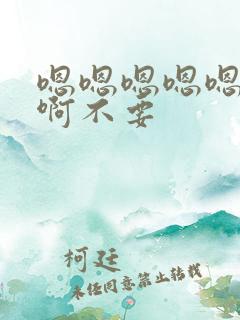 嗯嗯嗯嗯嗯
啊不要
柯廷
未经同意禁止转载